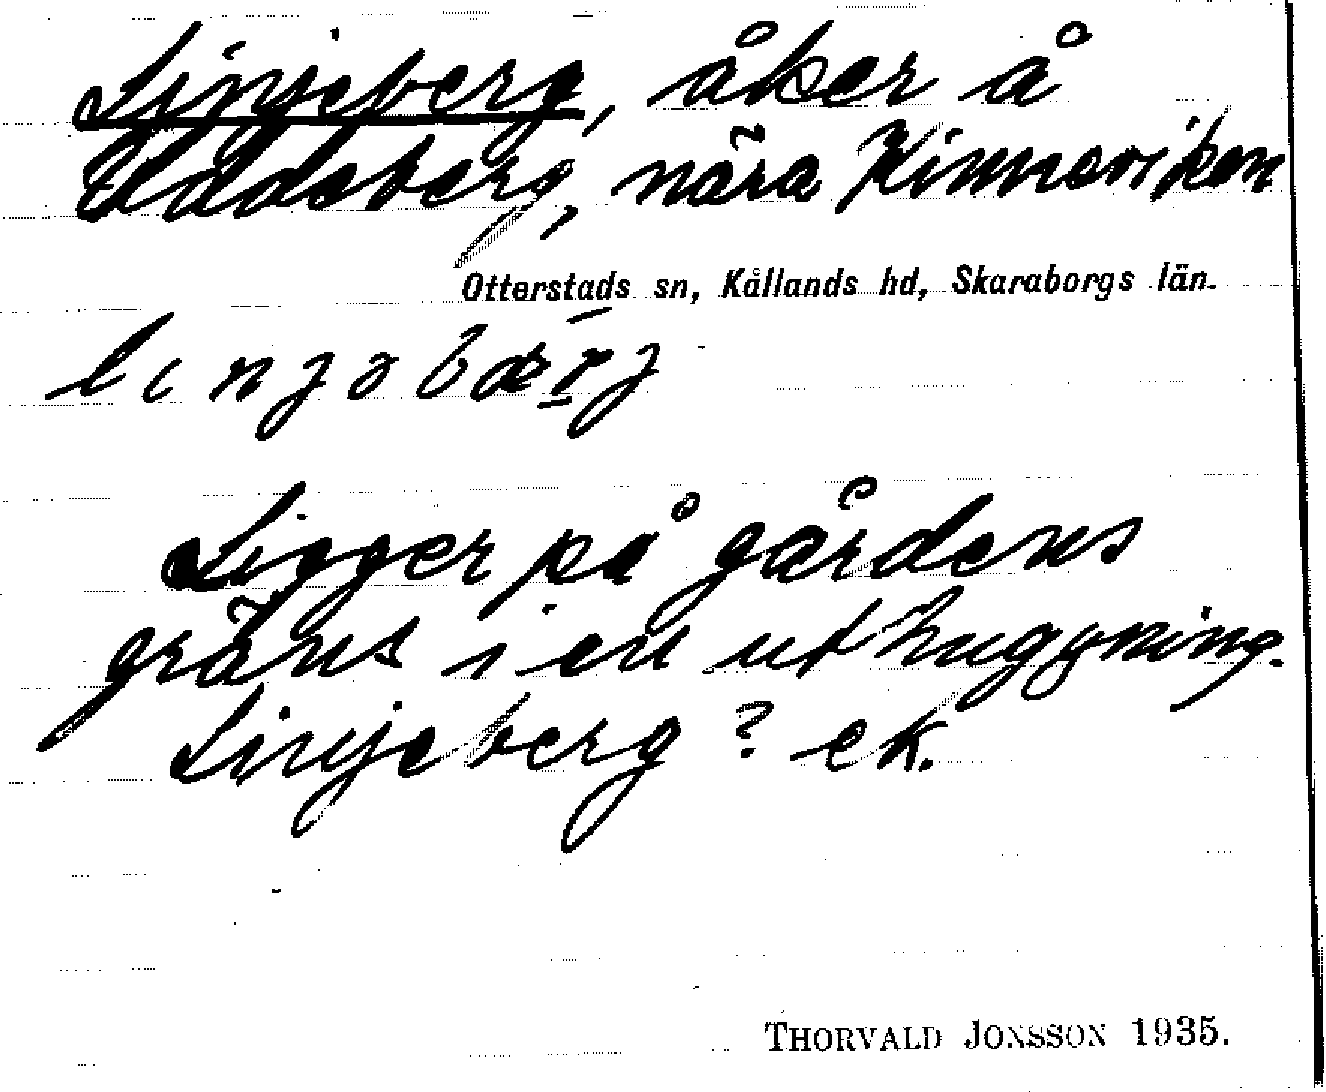 Linjeberg, åker å
Uddeberg, nära Kinneviken
Otterstads sn, Kållands hd, Skaraborgs län.
linjəbærj
Ligger på gårdens
gräns i en uthuggning.
Linjeberg? ek.
THORVALD JONSSON 1935.